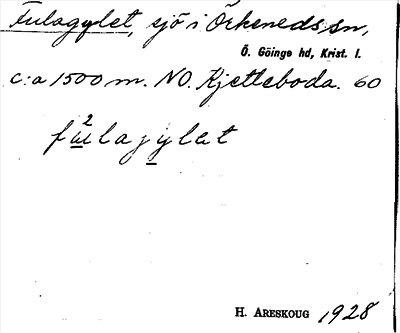 Fulagylet, sjö i Örkeneds sn,
Ö. Göinge hd, Krist. l.
c:a 1500 m. NO. Kjetteboda. 60
2
fulajylet
H. ARESKOUG 1928